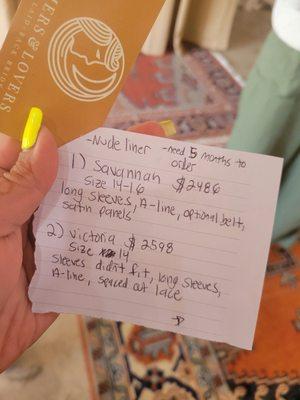 ERS & LOVERS
LAID BACK BRID
-Nude liner
-need 5 months to
order
1) Savannah $2486
Size 14-16
long sleeves, A-line, optional belt,
satin panels!
2) Victoria $2598
Size 14
sleeves didn't fit, long sleeves,
A-line, spaced out lace